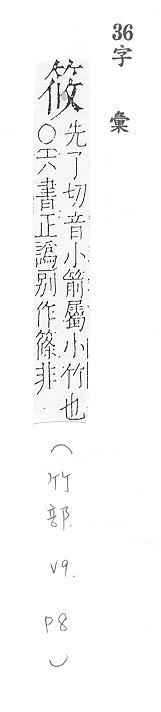 36字彙
筱先了切音小箭屬小竹也
○六書正譌別作篠非
(竹部. V9. P8)